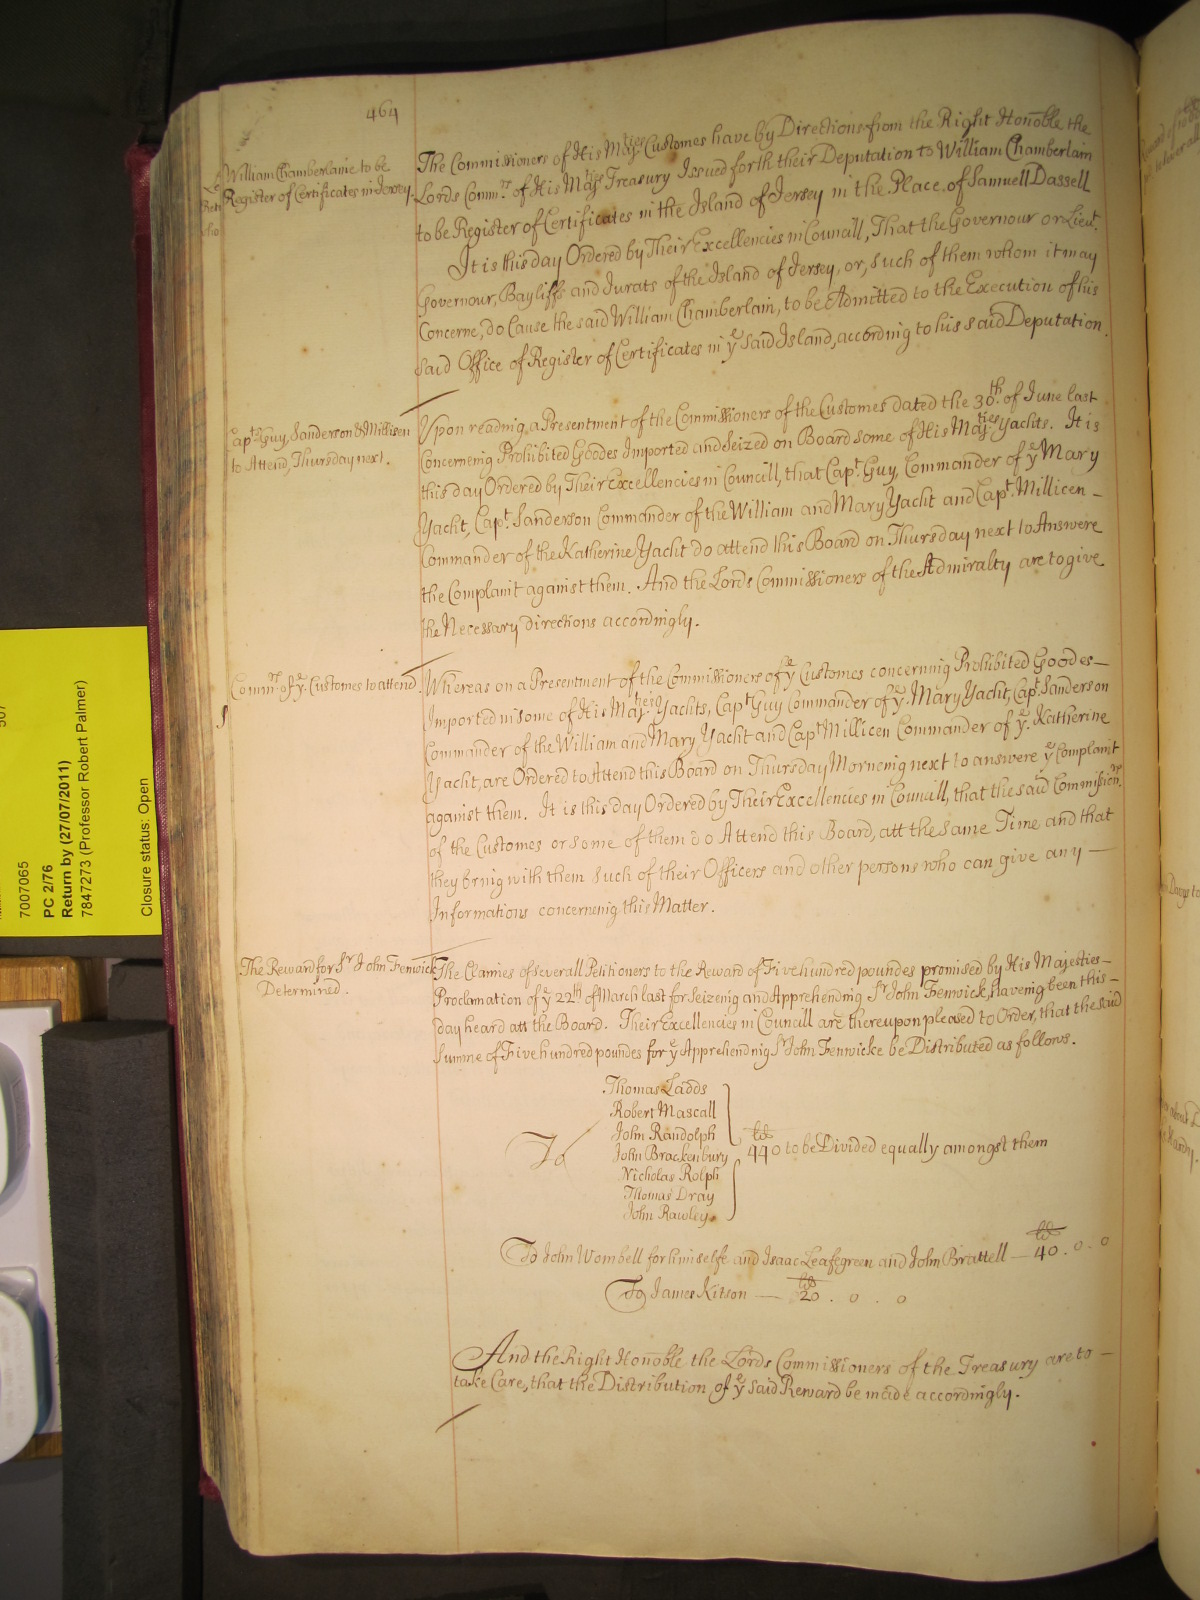 464
William Chamberlaine to be
Register of Certificates in Jersey.
The Commissioners of His Maties Customes have by Directions from the Right Honoble the
Lords Commrs of His Maties Treasury Issued forth their Deputation to William Chamberlain
to be Register of Certificates in the Island of Jersey in the Place of Samuell Dassell
It is this day Ordered by Their Excellencies in Councill, That the Governour or Lieut.
Governour, Bayliffs and Jurats of the Island of Jersey, or, such of them whom it may
Concerne, do Cause the said William Chamberlain, to be Admitted to the Execution of his
said Office of Register of Certificates in ye said Island, according to his said Deputation.
Capts Guy, Sanderson & Millisen
to Attend, Thursday next.
Upon reading, a Presentment of the Commissioners of the Customes dated the 30th. of June last
Concerning Prohibited Goodes Imported and Seized on Board some of His Majties Yachts. It is
this day Ordered by Their Excellencies in Councill, that Capt. Guy, Commander of ye Mary
Yacht, Capt. Sanderson Commander of the William and Mary Yacht and Capt. Millicen –
Commander of the Katherine Yacht do attend this Board on Thursday next to Answere
the Complaint against them. And the Lords Commissioners of the Admiralty are to give
the Necessary directions accordingly.
Commrs. of ye. Customes to attend.
Whereas on a Presentment of the Commissioners of ye Customes concerning Prohibited Goodes –
Imported in some of His Majties Yachts, Capt Guy Commander of ye. Mary Yacht, Capt. Sanderson
Commander of the William and Mary Yacht and Capt Millicen Commander of ye. Katherine
Yacht, are Ordered to Attend this Board on Thursday Morneing next to answere ye Complaint
against them. It is this day Ordered by Their Excellencies in Councill, that the said Commissionrs.
of the Customes or some of them do Attend this Board, att the same Time and that
they bring with them such of their Officers and other persons who can give any –
Informations concerning this Matter.
The Reward for Sr John Fenwick
Determined.
The Claimes of severall Petitioners to the Reward of Five hundred poundes promised by His Majesties –
Proclamation of ye 22th of March last for Seizeing and Apprehending Sr John Fenwick, haveing been this –
day heard att the Board. Their Excellencies in Councill are thereupon pleased to Order, that the said
Summe of Five hundred poundes for ye Apprehending Sr John Fenwicke be Distributed as follows.
Thomas Ladds
Robert Mascall
John Randolph
To John Brackenbury 440 lib to be Divided equally amongst them
Nicholas Rolph
Thomas Dray
John Rawley
To John Wombell for himselfe and Isaac Leafegreen and John Brattell – 40 lib . 0 . 0
To James Kitson – 20 lib . 0 . 0
And the Right Honoble the Lords Commissioners of the Treasury are to –
take Care, that the Distribution of ye said Reward be made accordingly.
7007065
PC 2/76
Return by (27/07/2011)
7847273 (Professor Robert Palmer)
Closure status: Open